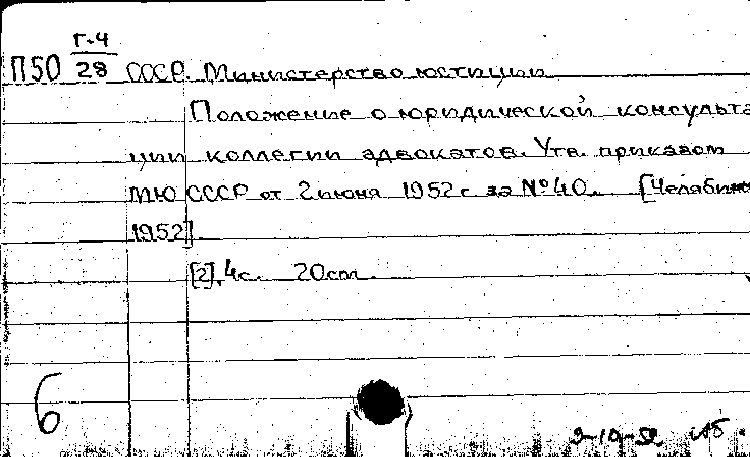 Г-4
П50 28 СССР. Министерство юстиции
Положение о юридической консульта
ции коллегии адвокатов. Утв. приказом
МЮ СССР от 2 июня 1952 г за № 40. [Челябинск
1952].
[2], 4 с. 20 см.
6